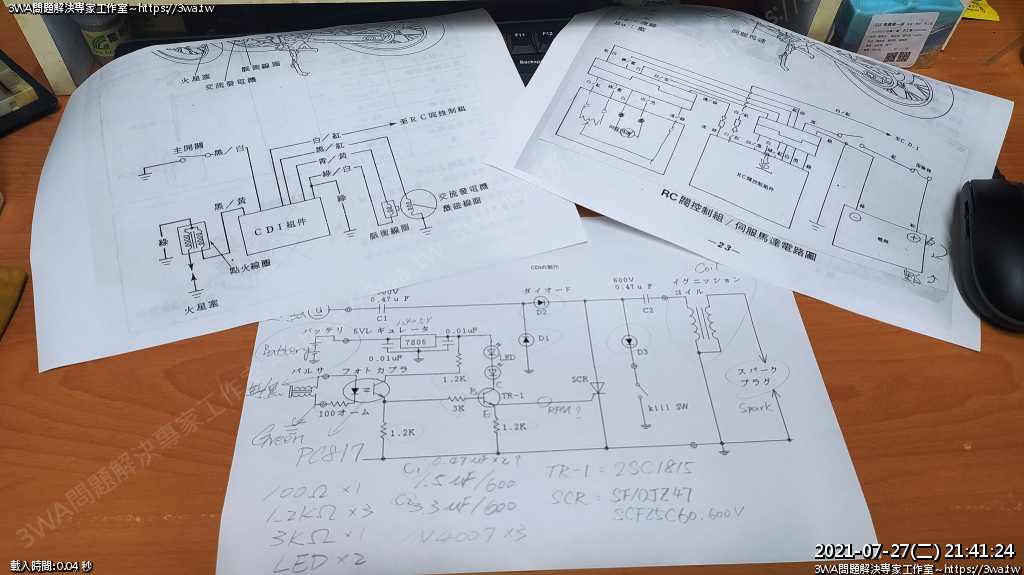 3WA問題解決專家工作室~https://3wa.tw
3WA問題解決專家工作室~https://3wa.tw
F11
F12
Backspace
火星塞
交流發電機
脈衝線圈
主開關
黑/白
白/紅
黑/紅
青/黃
綠/白
至RC閥控制組
黑/黃
綠
綠
CDI組件
點火線圈
火星塞
脈衝線圈
交流發電機
激磁線圈
伺服馬達
至C.D.I
RC閥控制組件
電瓶
RC閥控制組/伺服馬達電路圖
—23—
CDIの製作
0.47uF
C1
ダイオード
D2
600V
0.47uF
C2
Coil
イグニッション
コイル
バッテリ
5Vレギュレータ
7805
0.01uF
0.01uF
Battery
LED
D1
D3
パルサ
フォトカプラ
1.2K
3K
TR-1
B
C
E
RPM?
SCR
kill SW
スパーク
プラグ
Spark
100オーム
1.2K
1.2K
Green
PC817
100Ω ×1
1.2KΩ ×3
3KΩ ×1
LED ×2
C1 0.47uF×2?
1.5uF/600
C2 3.3uF/600
1N4007 ×3
TR-1 = 2SC1815
SCR = SF10JZ47
SCF25C60.600V
載入時間:0.04 秒
2021-07-27(二) 21:41:24
3WA問題解決專家工作室~https://3wa.tw